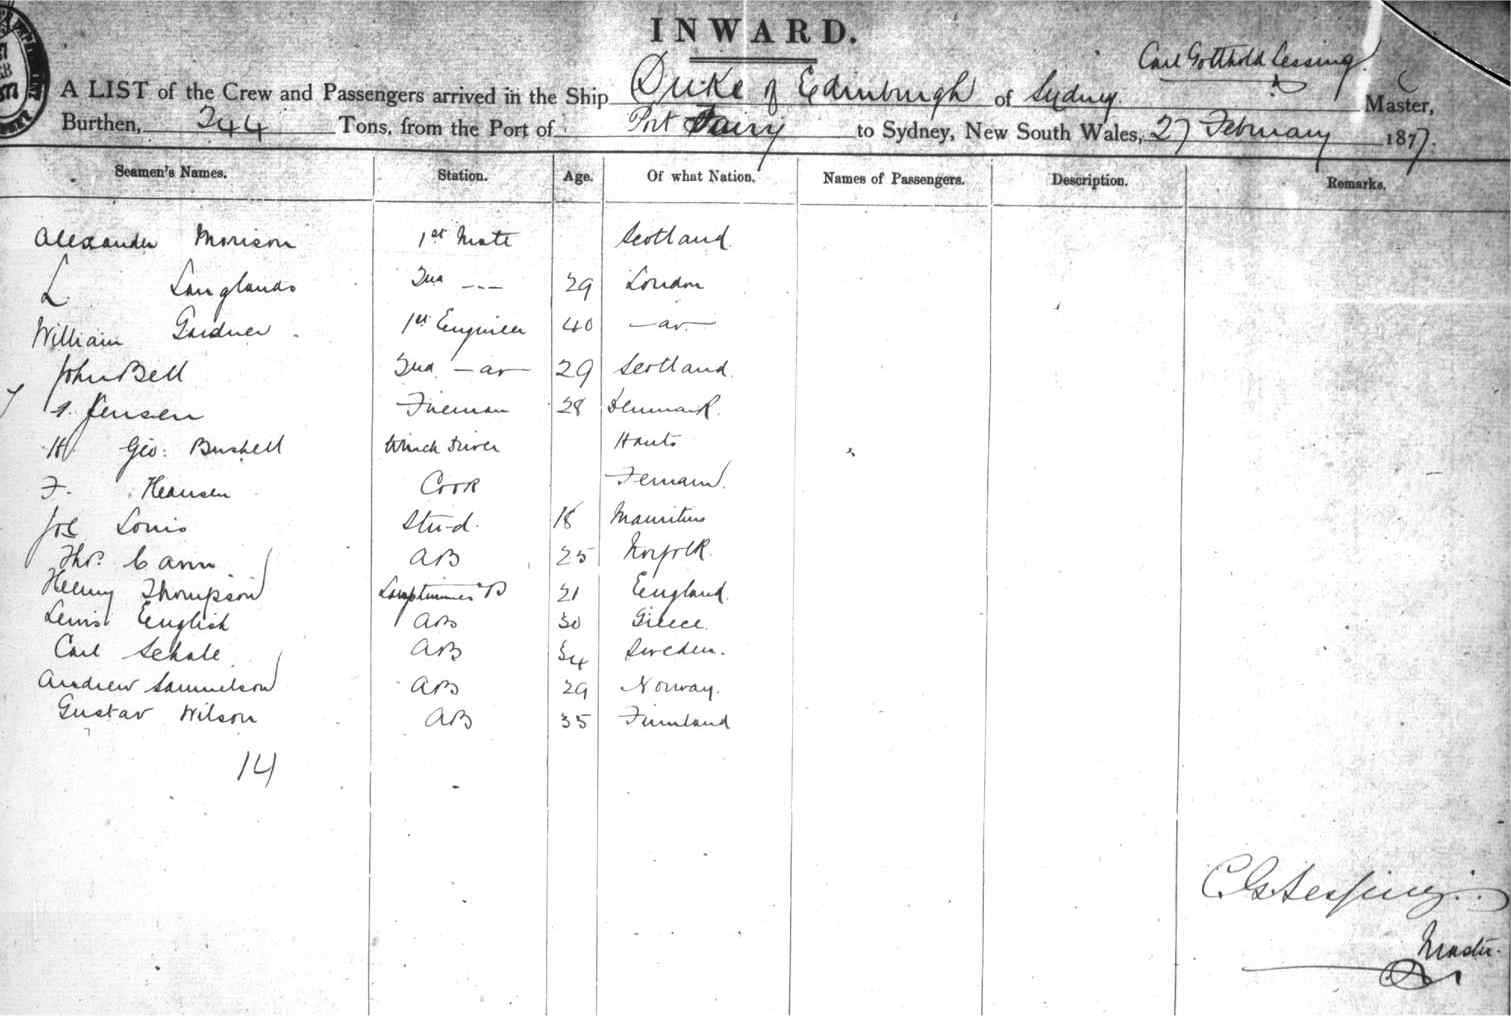 INWARD.
Carl Gotthold Lessing
A LIST of the Crew and Passengers arrived in the Ship Duke of Edinburgh of Sydney Master,
Burthen, 244 Tons, from the Port of Port Fairy to Sydney, New South Wales, 27 February 1877.
Seamen's Names. Station. Age. Of what Nation. Names of Passengers. Description. Remarks.
Alexander Morison 1st Mate Scotland
L Langlands 2nd --- 29 London
William Gardner 1st Engineer 40 —do—
John Bell 2nd —do— 29 Scotland
Jensen Fireman 28 Denmark
H Geo: Bushell Winch Driver Hants
F. Heansen Cook
Jos Louis Stu-d. 18 Mauritius
Thos. Cann AB 25 Norfolk
Henry Thompson Lamptrimmer 21 England
Lewis English AB 30 Greece
Carl Schale AB 34 Sweden.
Andrew Samuelson AB 29 Norway.
Gustav Wilson AB 35 Finnland
14
C G Lessing
Master